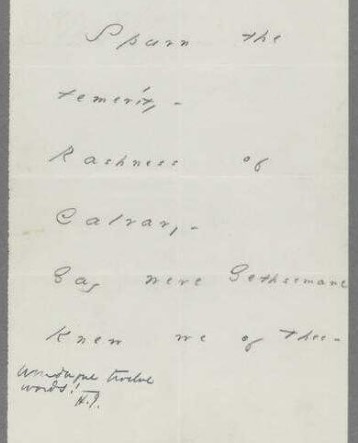 Spurn the
temerity -
Rashness of
Calvary -
Gay were Gethsemane
Knew we of thee -
twelve
words!